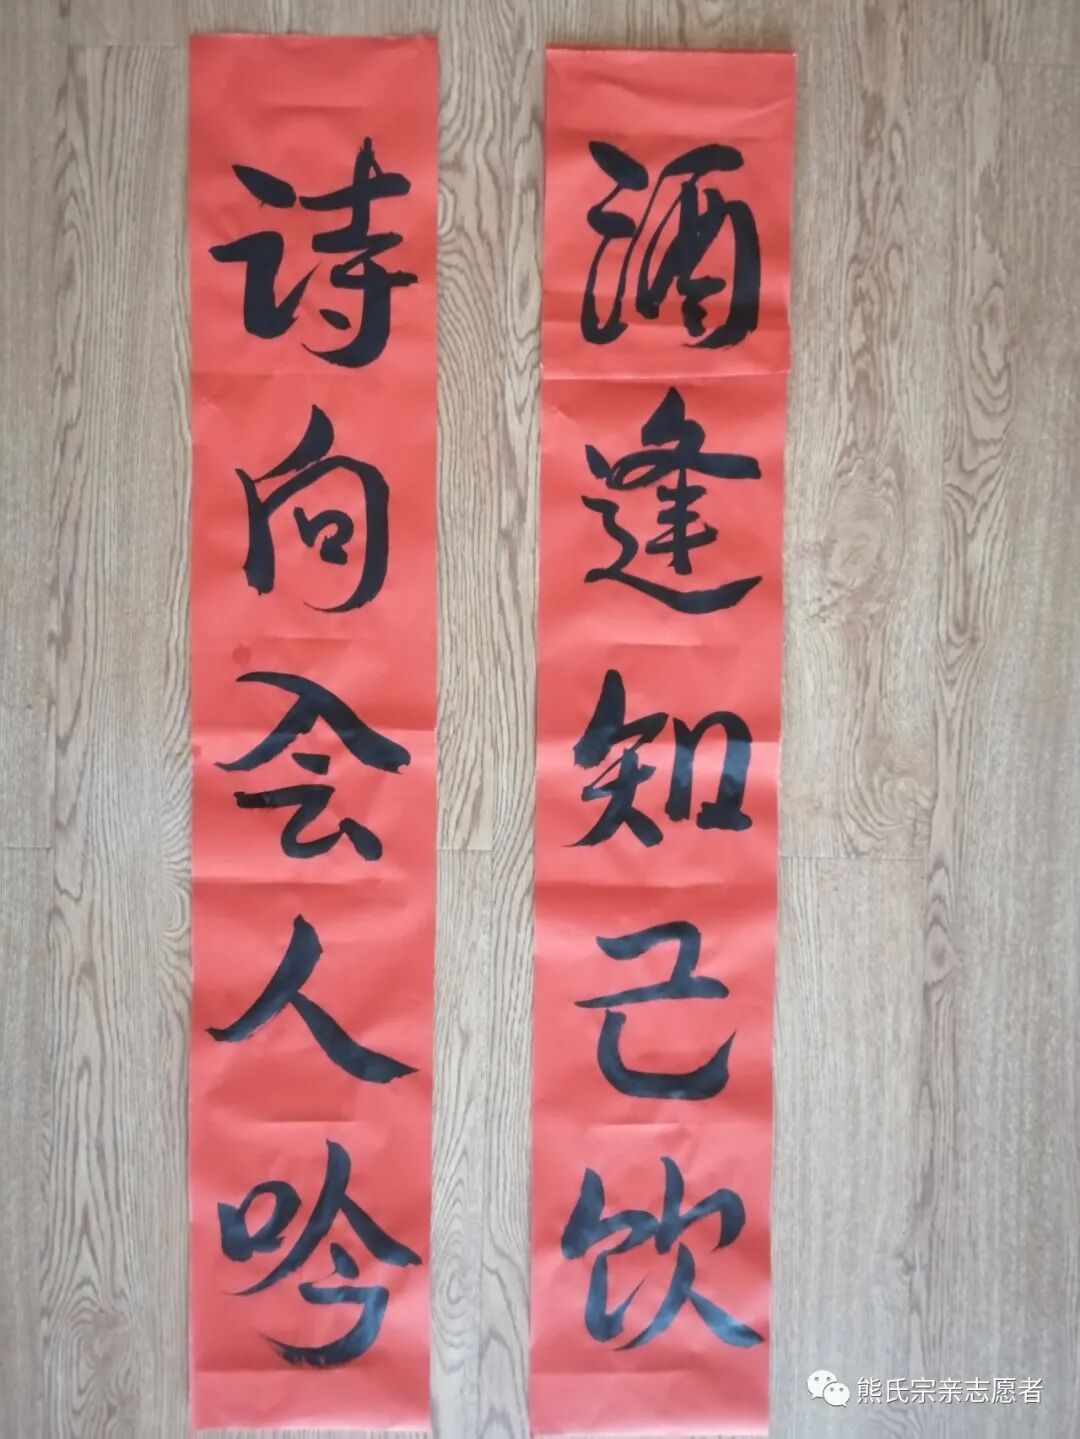 酒逢知己饮
诗向会人吟
熊氏宗亲志愿者